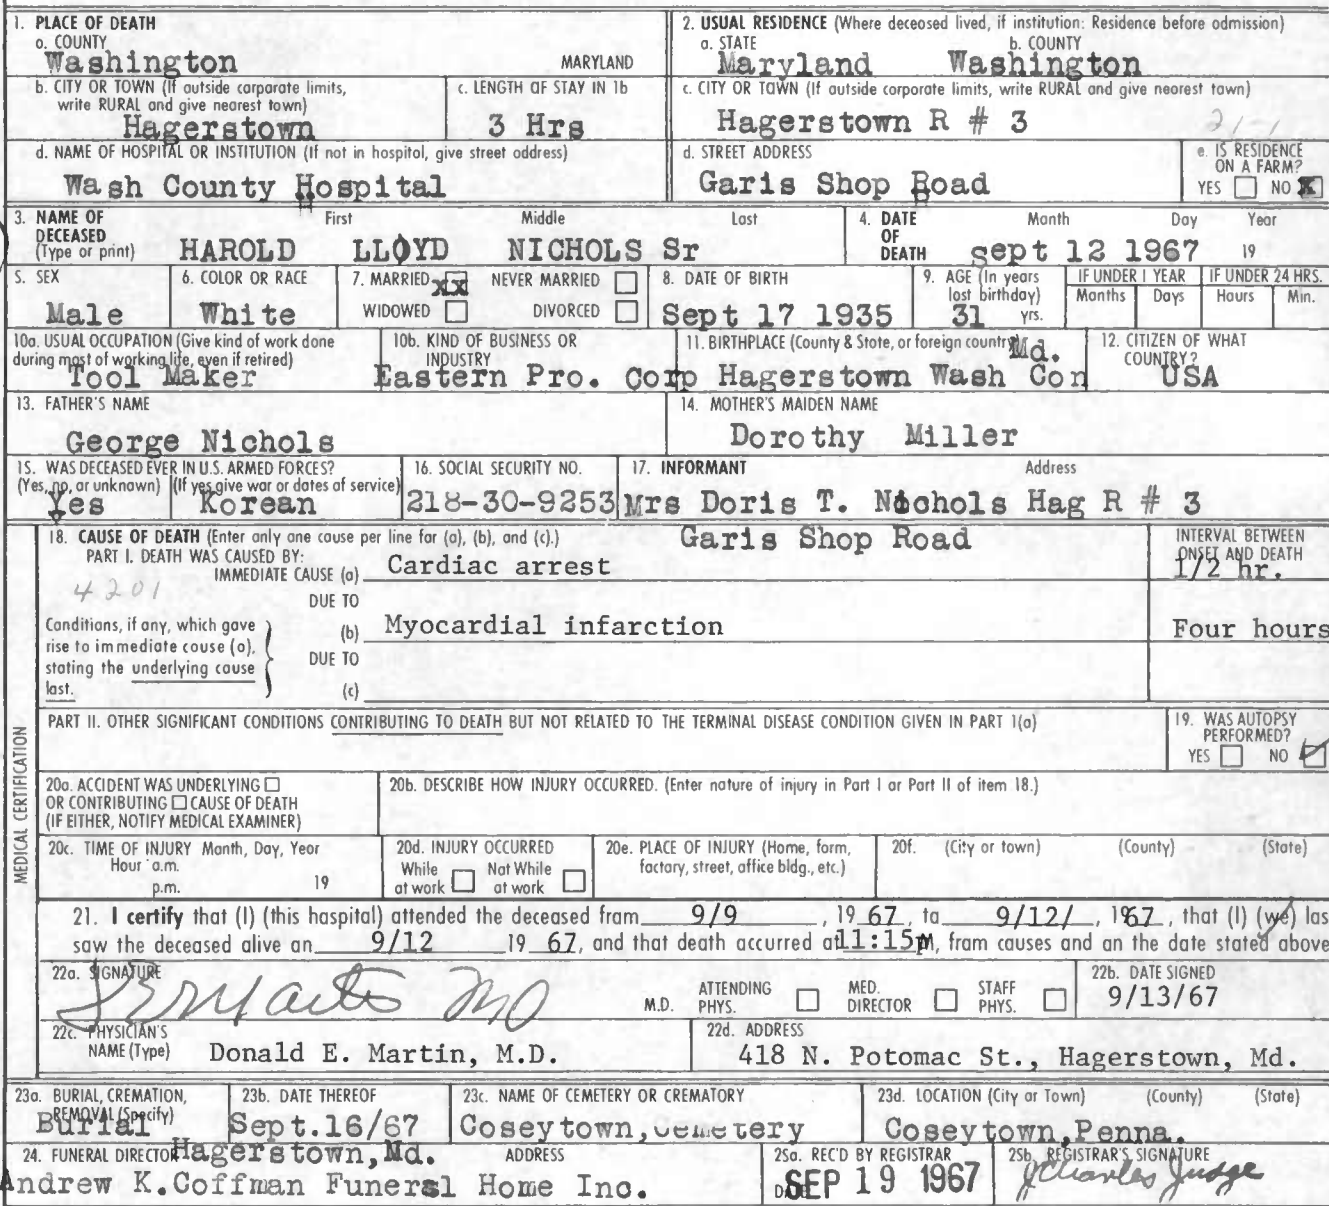 1. PLACE OF DEATH
a. COUNTY
Washington MARYLAND
2. USUAL RESIDENCE (Where deceased lived, if institution: Residence before admission)
a. STATE b. COUNTY
Maryland Washington
b. CITY OR TOWN (If outside corporate limits, write RURAL and give nearest town)
Hagerstown
c. LENGTH OF STAY IN 1b
3 Hrs
c. CITY OR TOWN (If outside corporate limits, write RURAL and give nearest town)
Hagerstown R # 3
21-1
d. NAME OF HOSPITAL OR INSTITUTION (If not in hospital, give street address)
Wash County Hospital
d. STREET ADDRESS
Garis Shop Road
e. IS RESIDENCE ON A FARM?
YES NO X
3. NAME OF DECEASED (Type or print)
First Middle Last
HAROLD LLOYD NICHOLS Sr
4. DATE OF DEATH
Month Day Year
sept 12 1967 19
5. SEX
Male
6. COLOR OR RACE
White
7. MARRIED xx NEVER MARRIED
WIDOWED DIVORCED
8. DATE OF BIRTH
Sept 17 1935
9. AGE (In years last birthday)
31 yrs.
IF UNDER 1 YEAR
Months Days
IF UNDER 24 HRS.
Hours Min.
10a. USUAL OCCUPATION (Give kind of work done during most of working life, even if retired)
Tool Maker
10b. KIND OF BUSINESS OR INDUSTRY
Eastern Pro. Corp
11. BIRTHPLACE (County & State, or foreign country)
Md.
Hagerstown Wash Con
12. CITIZEN OF WHAT COUNTRY?
USA
13. FATHER'S NAME
George Nichols
14. MOTHER'S MAIDEN NAME
Dorothy Miller
15. WAS DECEASED EVER IN U.S. ARMED FORCES?
(Yes, no, or unknown) (If yes give war or dates of service)
Yes Korean
16. SOCIAL SECURITY NO.
218-30-9253
17. INFORMANT Address
Mrs Doris T. Nichols Hag R # 3
Garis Shop Road
MEDICAL CERTIFICATION
18. CAUSE OF DEATH (Enter only one cause per line for (a), (b), and (c).)
PART I. DEATH WAS CAUSED BY:
INTERVAL BETWEEN ONSET AND DEATH
IMMEDIATE CAUSE (a) Cardiac arrest 1/2 hr.
4201
DUE TO
Conditions, if any, which gave rise to immediate cause (a), stating the underlying cause last.
(b) Myocardial infarction Four hours
DUE TO
(c)
PART II. OTHER SIGNIFICANT CONDITIONS CONTRIBUTING TO DEATH BUT NOT RELATED TO THE TERMINAL DISEASE CONDITION GIVEN IN PART 1(a)
19. WAS AUTOPSY PERFORMED?
YES NO ✓
20a. ACCIDENT WAS UNDERLYING
OR CONTRIBUTING CAUSE OF DEATH
(IF EITHER, NOTIFY MEDICAL EXAMINER)
20b. DESCRIBE HOW INJURY OCCURRED. (Enter nature of injury in Part I or Part II of item 18.)
20c. TIME OF INJURY Month, Day, Year
Hour a.m.
p.m. 19
20d. INJURY OCCURRED
While at work Not While at work
20e. PLACE OF INJURY (Home, farm, factory, street, office bldg., etc.)
20f. (City or town) (County) (State)
21. I certify that (I) (this hospital) attended the deceased from 9/9, 1967, to 9/12/, 1967, that (I) (we) las
saw the deceased alive on 9/12 19 67, and that death occurred at 11:15pM, from causes and on the date stated above
22a. SIGNATURE
M.D. ATTENDING PHYS. MED. DIRECTOR STAFF PHYS.
22b. DATE SIGNED
9/13/67
22c. PHYSICIAN'S NAME (Type)
Donald E. Martin, M.D.
22d. ADDRESS
418 N. Potomac St., Hagerstown, Md.
23a. BURIAL, CREMATION, REMOVAL (Specify)
Burial
23b. DATE THEREOF
Sept.16/67
23c. NAME OF CEMETERY OR CREMATORY
Coseytown, Cemetery
23d. LOCATION (City or Town) (County) (State)
Coseytown, Penna.
24. FUNERAL DIRECTOR ADDRESS
Hagerstown, Md.
Andrew K. Coffman Funeral Home Inc.
25a. REC'D BY REGISTRAR
DATE SEP 19 1967
25b. REGISTRAR'S SIGNATURE
J Charles Judge